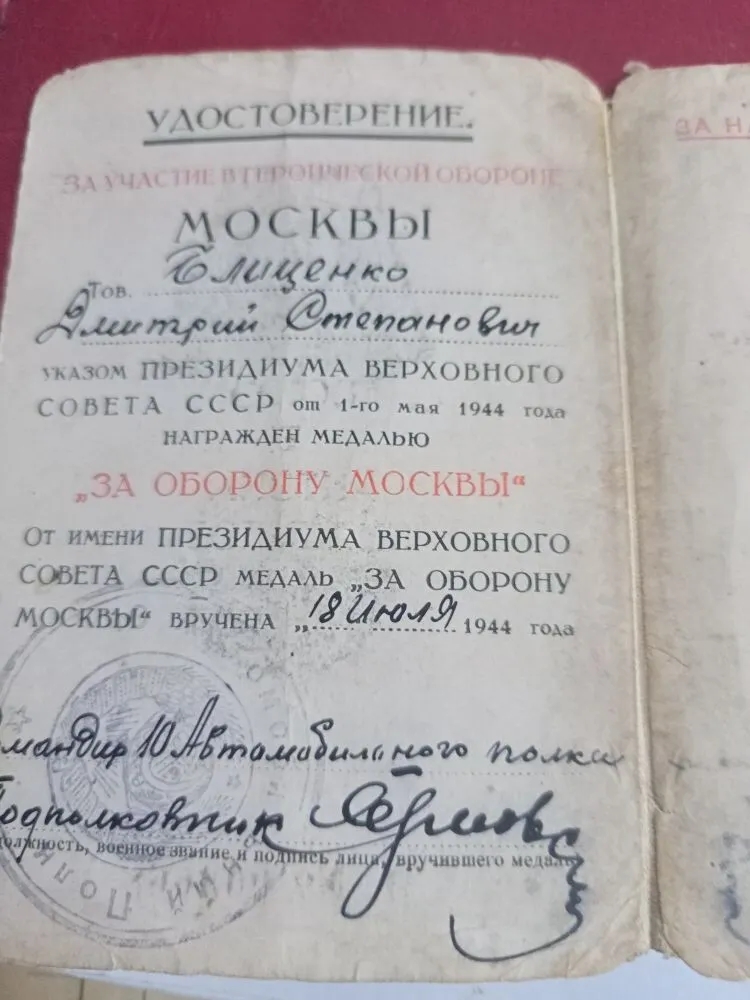 УДОСТОВЕРЕНИЕ.
ЗА УЧАСТИЕ В ГЕРОИЧЕСКОЙ ОБОРОНЕ
МОСКВЫ
Тов. Блищенко
Дмитрий Степанович
указом ПРЕЗИДИУМА ВЕРХОВНОГО
СОВЕТА СССР от 1-го мая 1944 года
НАГРАЖДЕН МЕДАЛЬЮ
„ЗА ОБОРОНУ МОСКВЫ“
От имени ПРЕЗИДИУМА ВЕРХОВНОГО
СОВЕТА СССР МЕДАЛЬ „ЗА ОБОРОНУ
МОСКВЫ“ ВРУЧЕНА „18 Июля 1944 года
омандир 10 Автомобильного полка
Подполковник
олжность, военное звание и подпись лица, вручившего медаль
ЗА Н